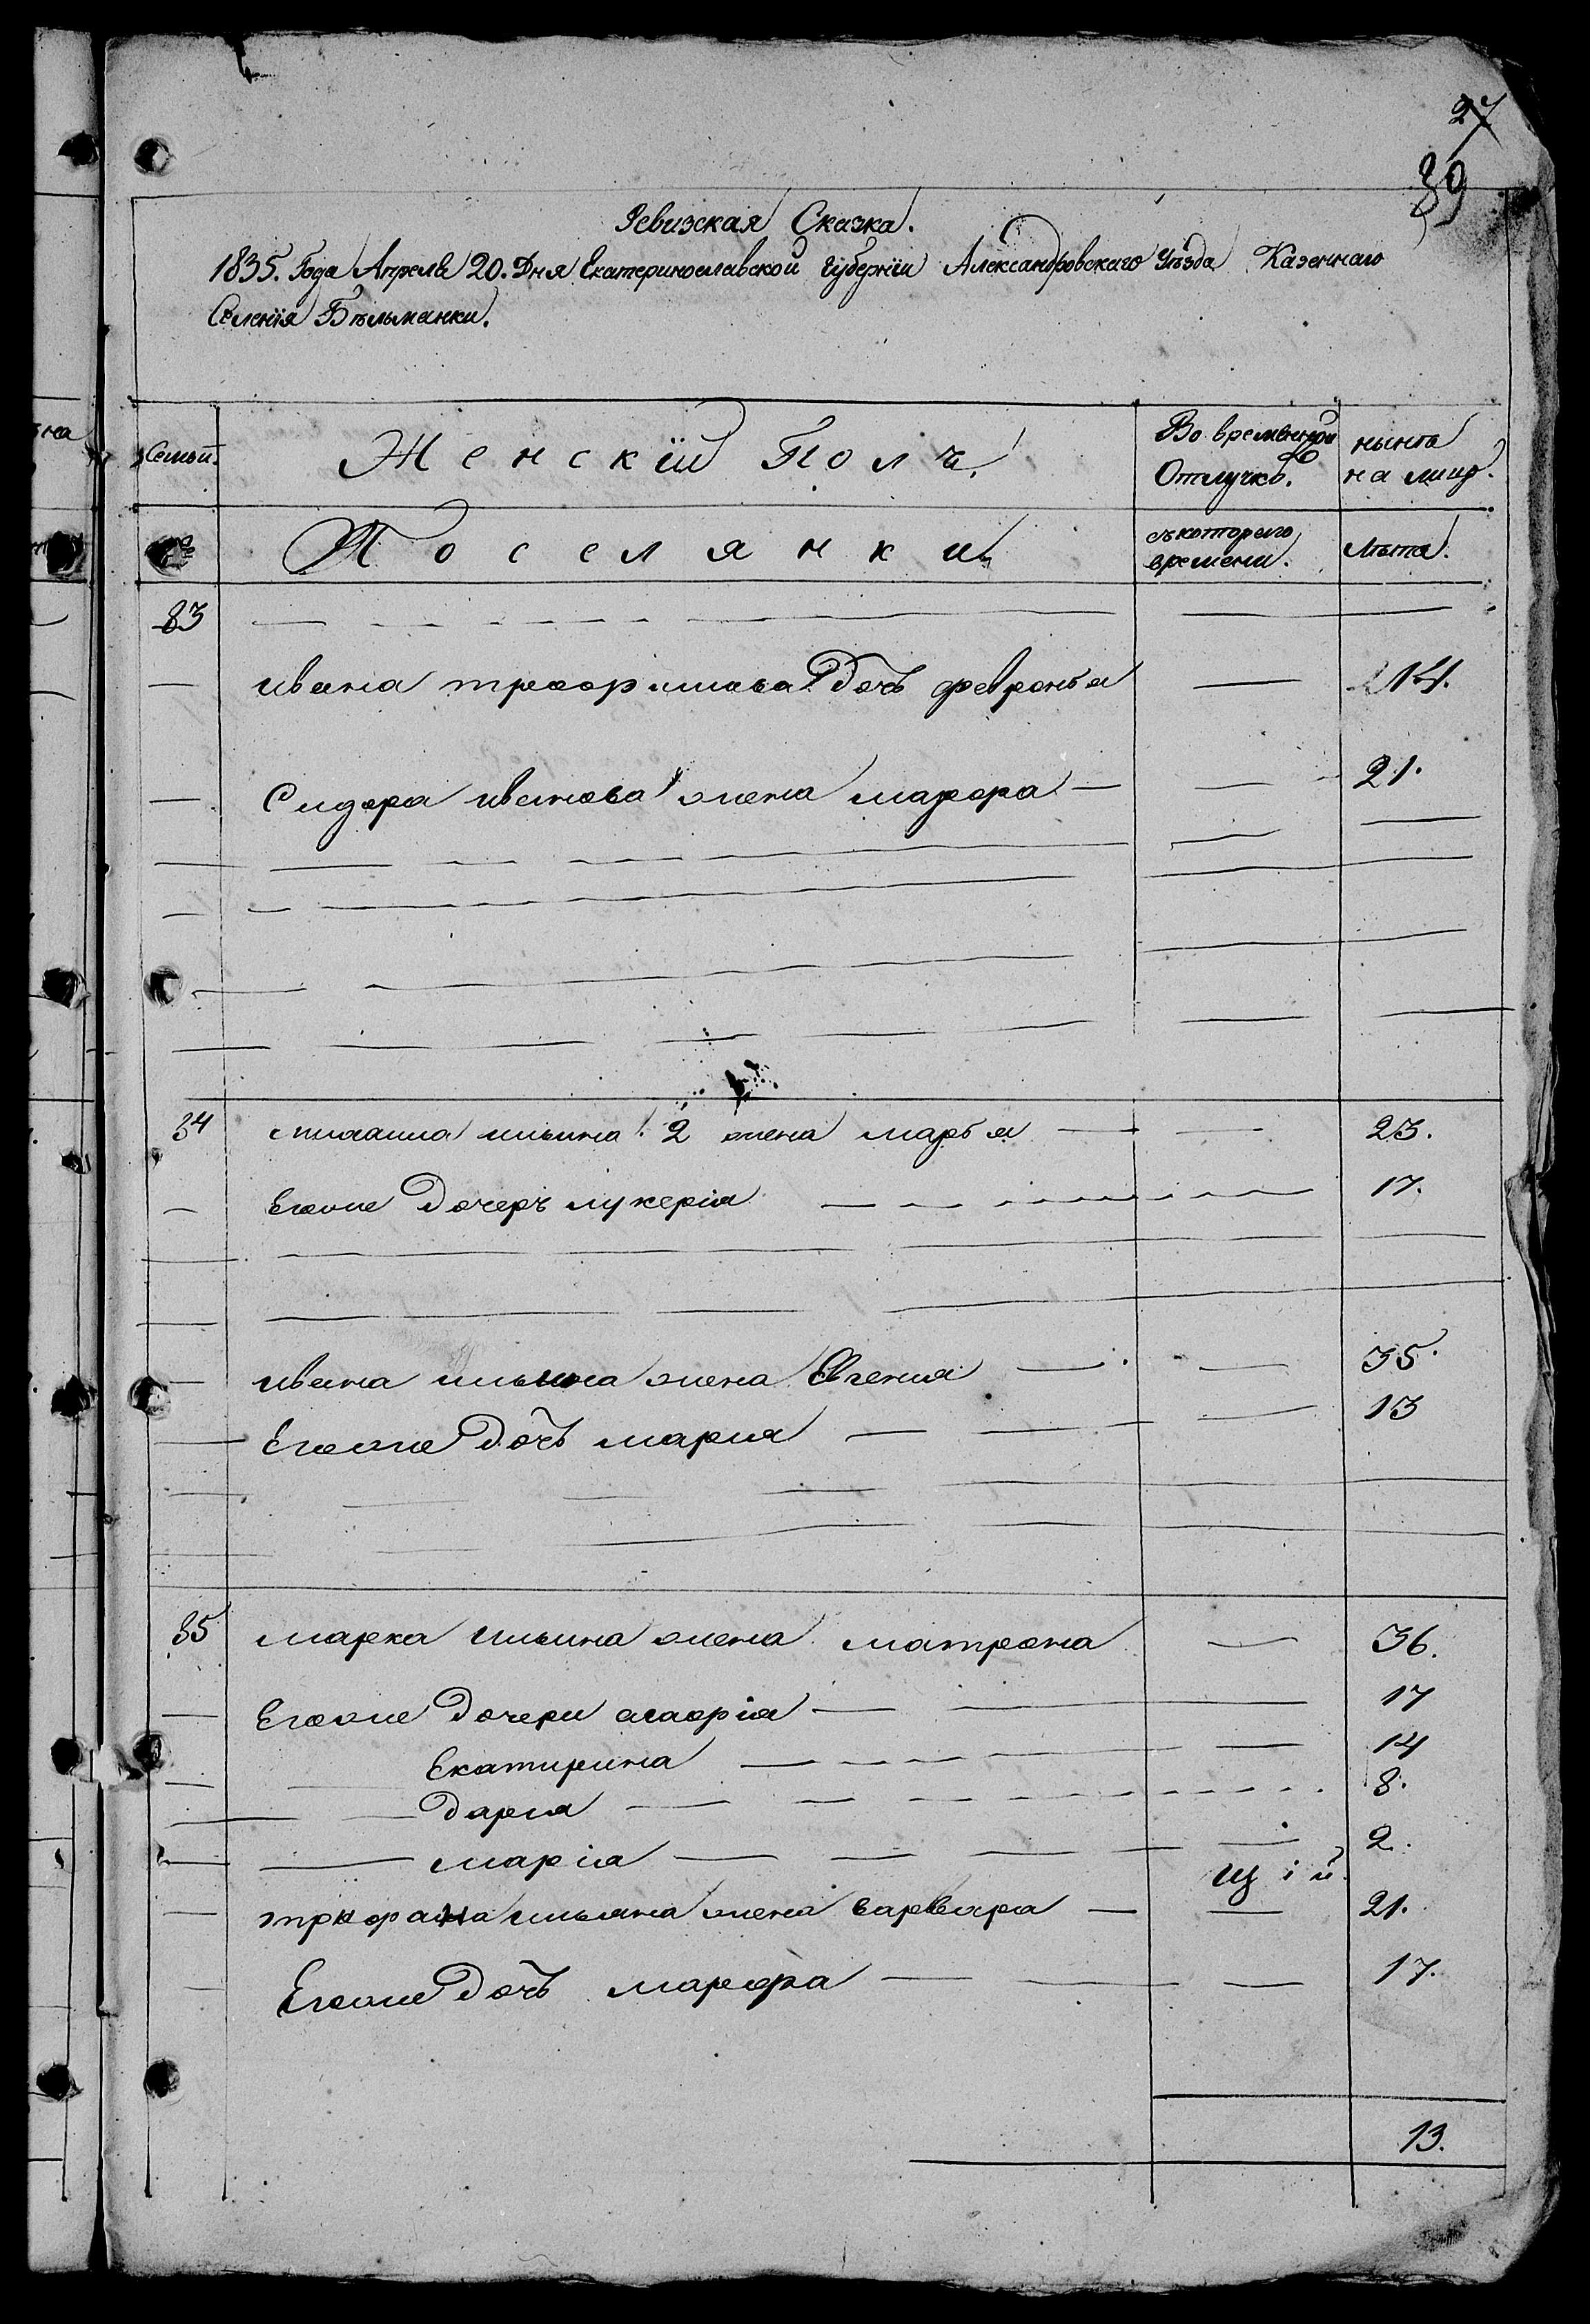 27
39
Ревизская Сказка.
1835. Года Апреля 20. Дня Екатеринославской Губернïи Александровскаго Уѣзда Казеннаго
Селенïя Бѣльманки.
Семьи. Женскïй Полъ. Во временной Отлучкѣ. нынѣ на лицо.
№ Поселянки съ котораго времени. Лѣта.
83
ивана трофимова дочь февронья 14.
Сидора иванова жена марфа 21.
84 михаила ильина 2 жена марья 23.
Егоже дочерь лукерiя 17.
ивана ильина жена Евгения 35.
Егоже дочь мария 13
85 марка ильина жена матрона 36.
Егоже дочери агафрiя 17
Екатирина 14
Дария 8.
марiя 2.
трифона ильина жена варвара 21.
Егоже дочь марфра 17.
13.